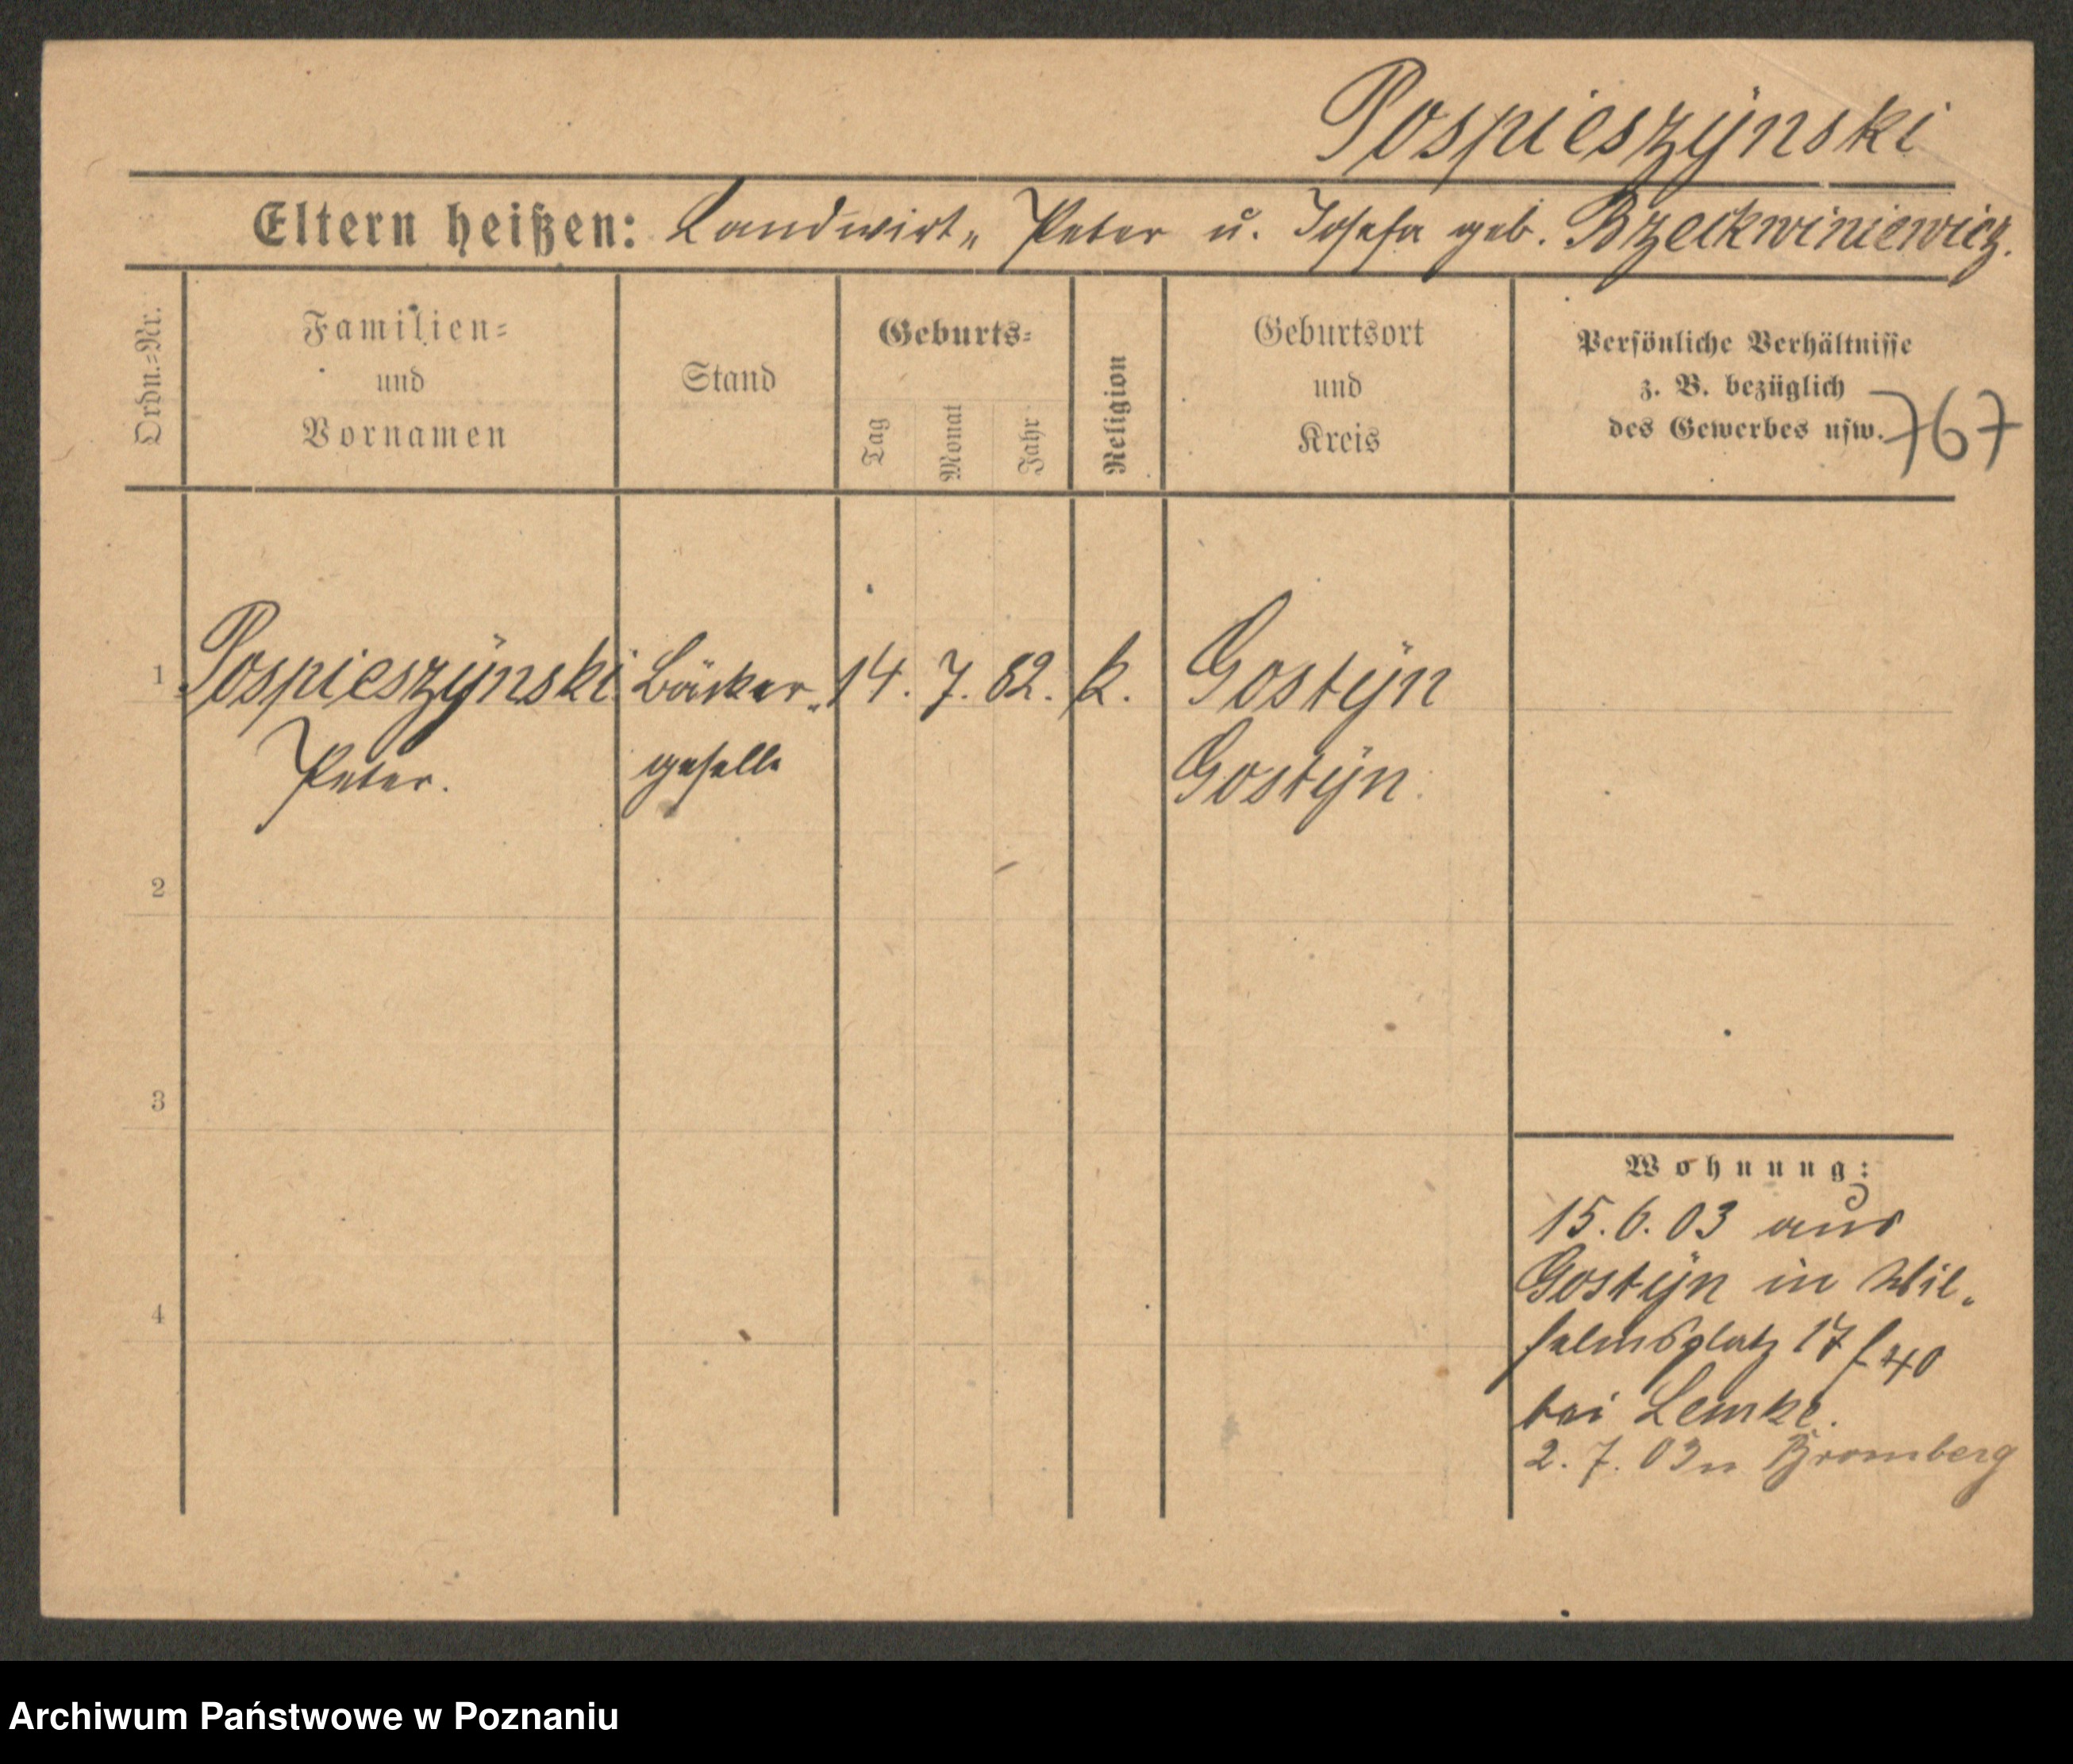 Pospieszÿnski
Eltern heißen: Landwirt„ Peter u. Josefa geb. Brzeckwiniewicz.
Ordn.=Nr.
Familien=
und
Vornamen
Stand
Geburts=
Tag
Monat
Jahr
Religion
Geburtsort
und
Kreis
Persönliche Verhältnisse
z. B. bezüglich
des Gewerbes usw.
767
1 Pospieszÿnski Bäcker„ 14. 7. 82. k. Gostÿn
Peter. geselle Gostÿn.
2
3
4
Wohnung:
15.6.03 aus
Gostÿn in Wil„
helmsplatz 17 f 40
bei Lemke.
2. 7. 03 n Bromberg
Archiwum Państwowe w Poznaniu